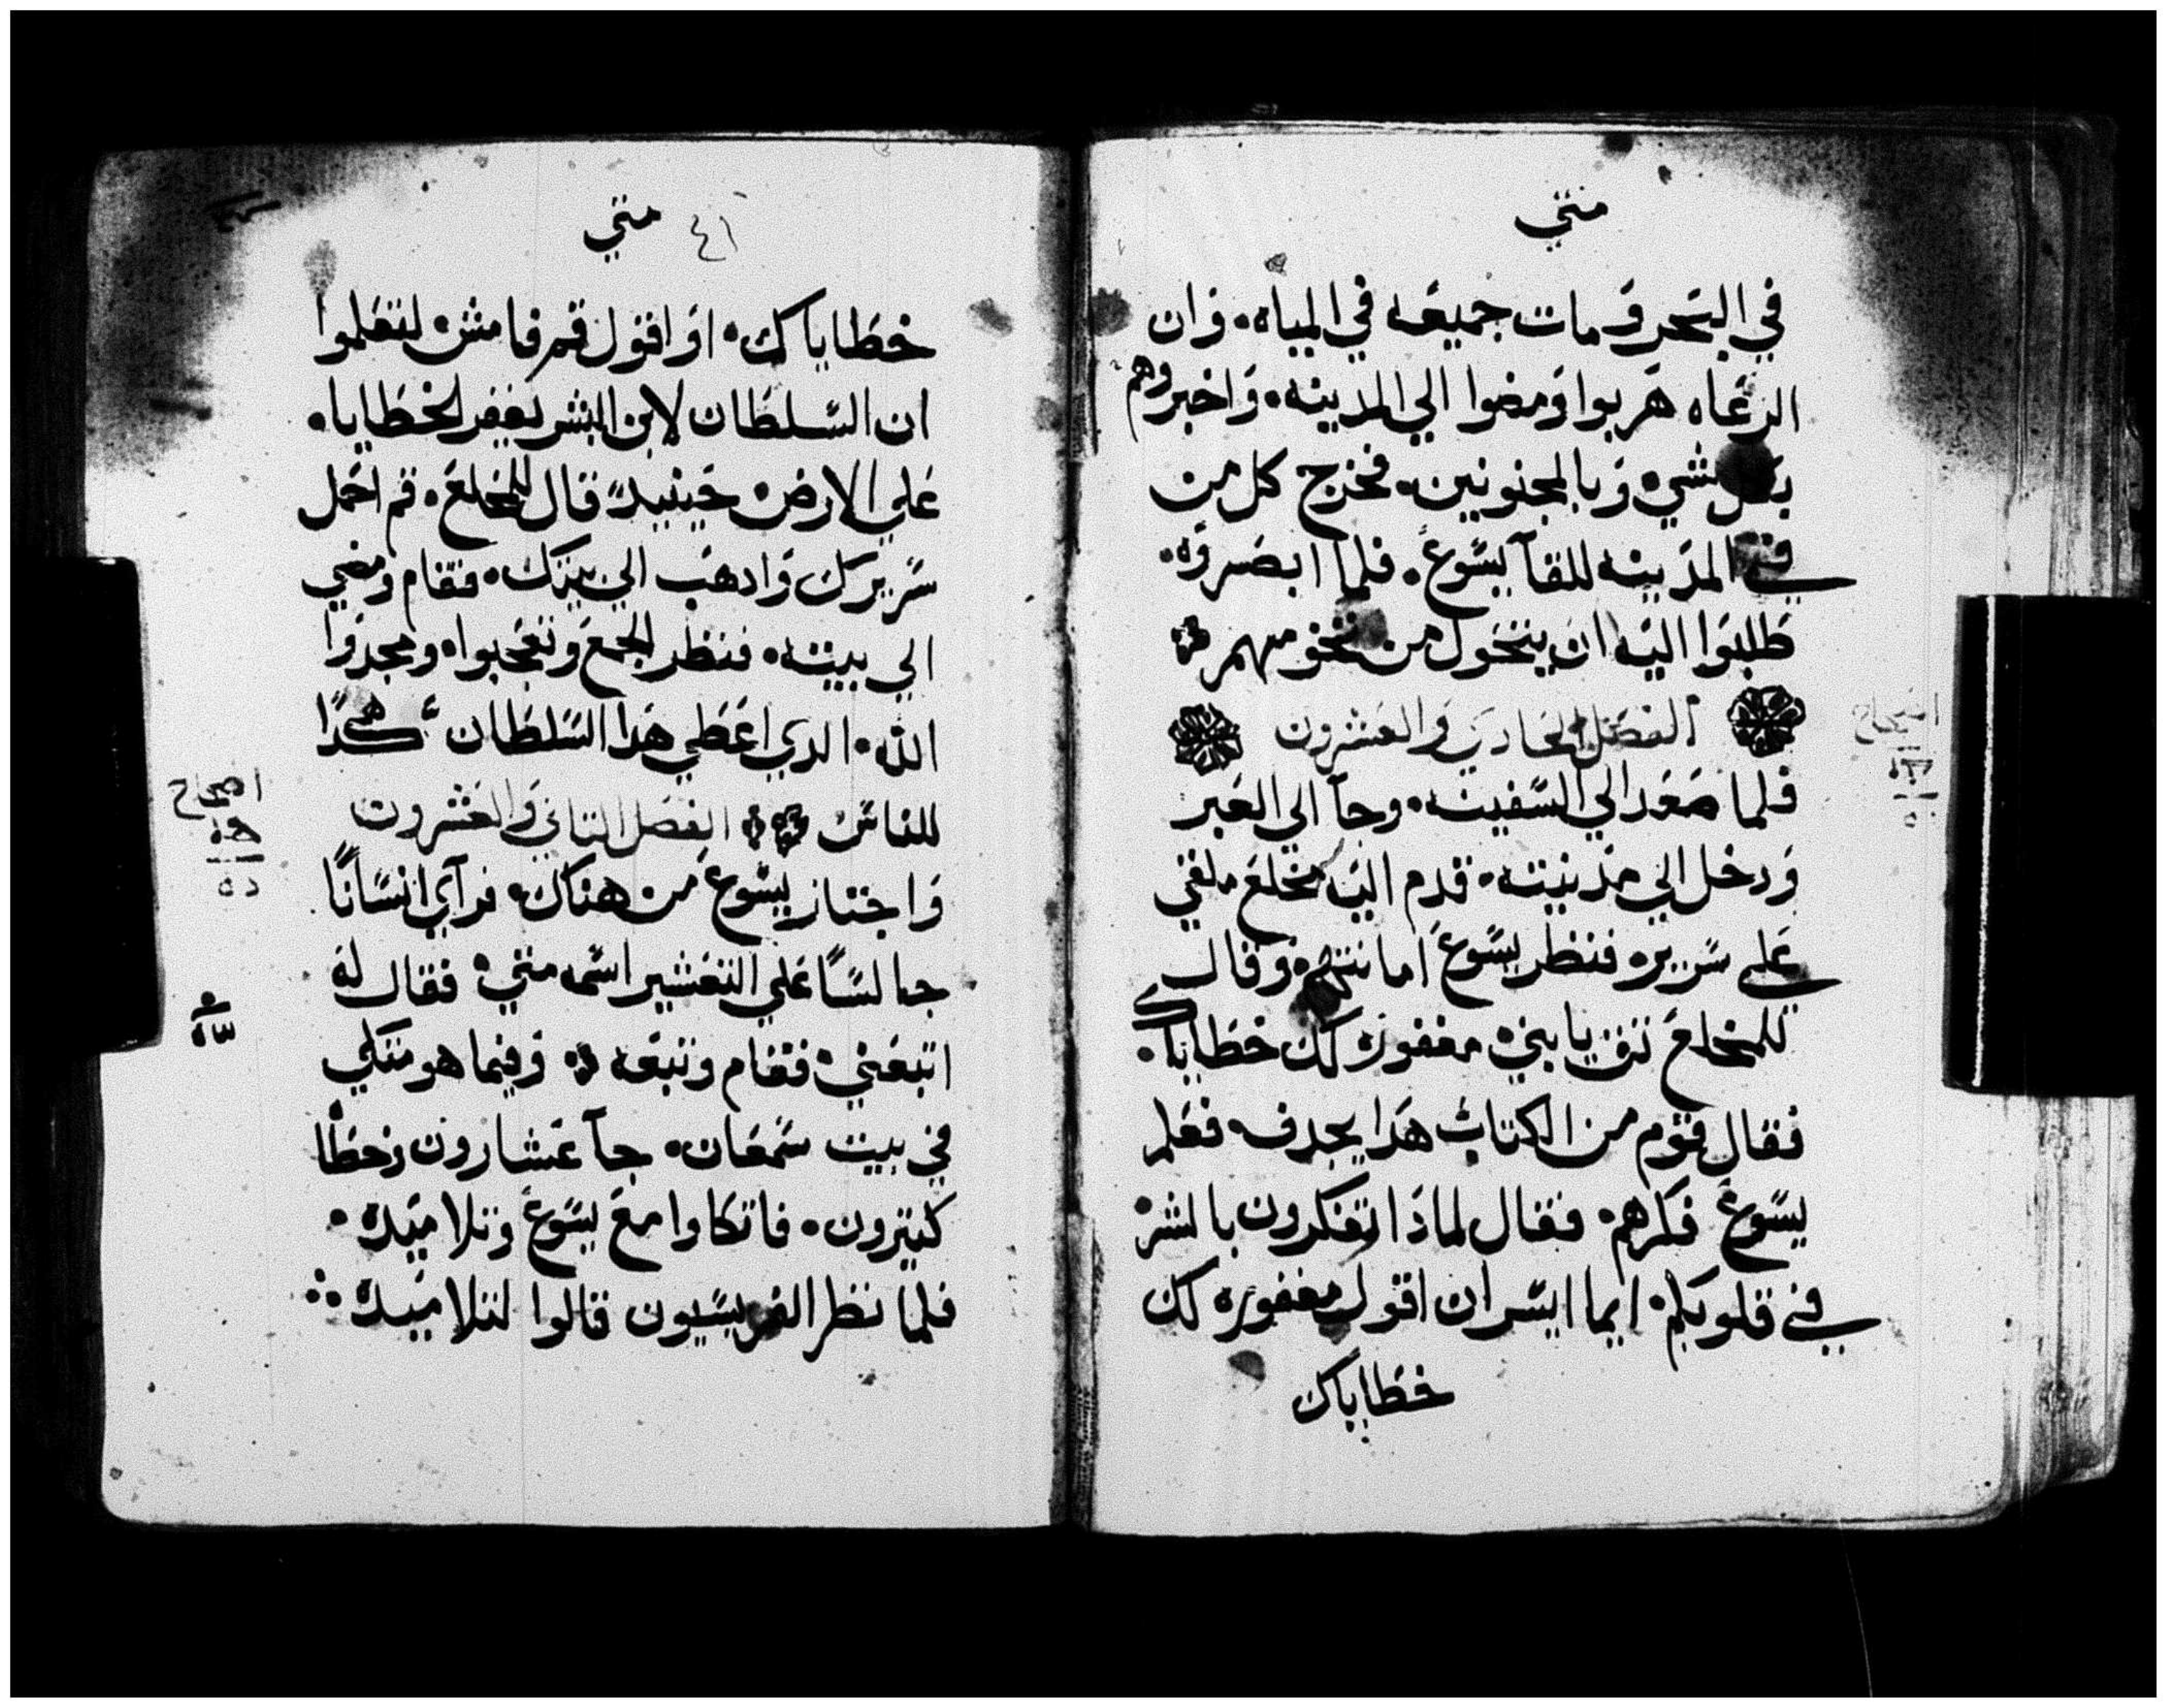 متي
في البحر ومات جميعه في المياه. وان
الرعاه هربوا ومضوا الي المدينه. واخبروهم
بكل شي وبالمجنونين. فخرج كل من
في المدينه للقآ يسوع. فلما ابصروه.
طلبوا اليه ان يتحول من تخومهم
الفصل الحادي والعشرون
اصحاح
فلما صعد الي السفينه. وجآ الي العبر
ودخل الي مدينته. قدم اليه مخلع ملقي
علي سريره فنظر يسوع امانتهم وقال
للمخلع ثق يا بني مغفوره لك خطاياك.
فقال قوم من الكتاب هدا يجدف فعلم
يسوع فكرهم. فقال لمادا تفكرون بالشر
في قلوبكم. ايما ايسر ان اقول مغفوره لك
خطاياك
متي ٤١
خطاياك. او اقول قم فامش. لتعلموا
ان السلطان لابن البشر لغفر الخطايا.
علي الارض حينيد قال للمخلع. قم احمل
سريرك وادهب الي بيتك. فقام ومضي
الي بيته. فنظر الجمع وتعجبوا ومجدوا
الله. الدي اعطي هدا السلطان هكدا
للناس الفصل التاني والعشرون
اصحاح
واجتاز يسوع من هناك. فرآي انسانًا
جالسًا علي التعشير اسمه متي. فقال له
اتبعني فقام وتبعه وفيما هو متكي
في بيت سمعان. جآ عشارون وخطاا
كتيرون. فاتكاوا مع يسوع وتلاميده.
فلما نظر الفريسيون قالوا لتلاميده